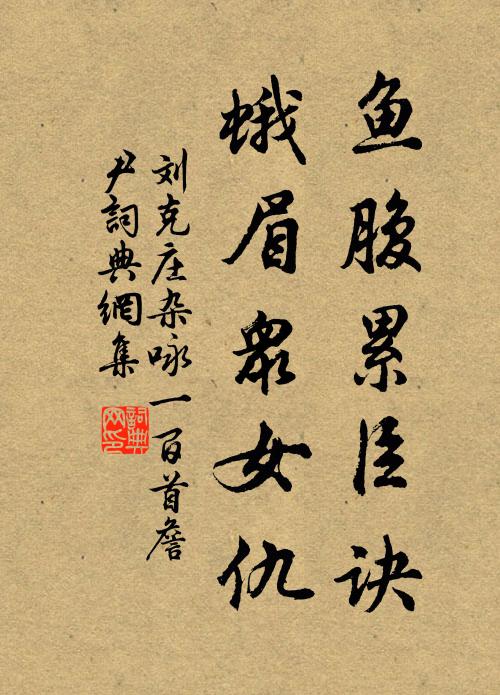 鱼腹累臣诀
蛾眉众女仇
刘克庄杂咏一百首詹
尹詞典網集
詞典网印